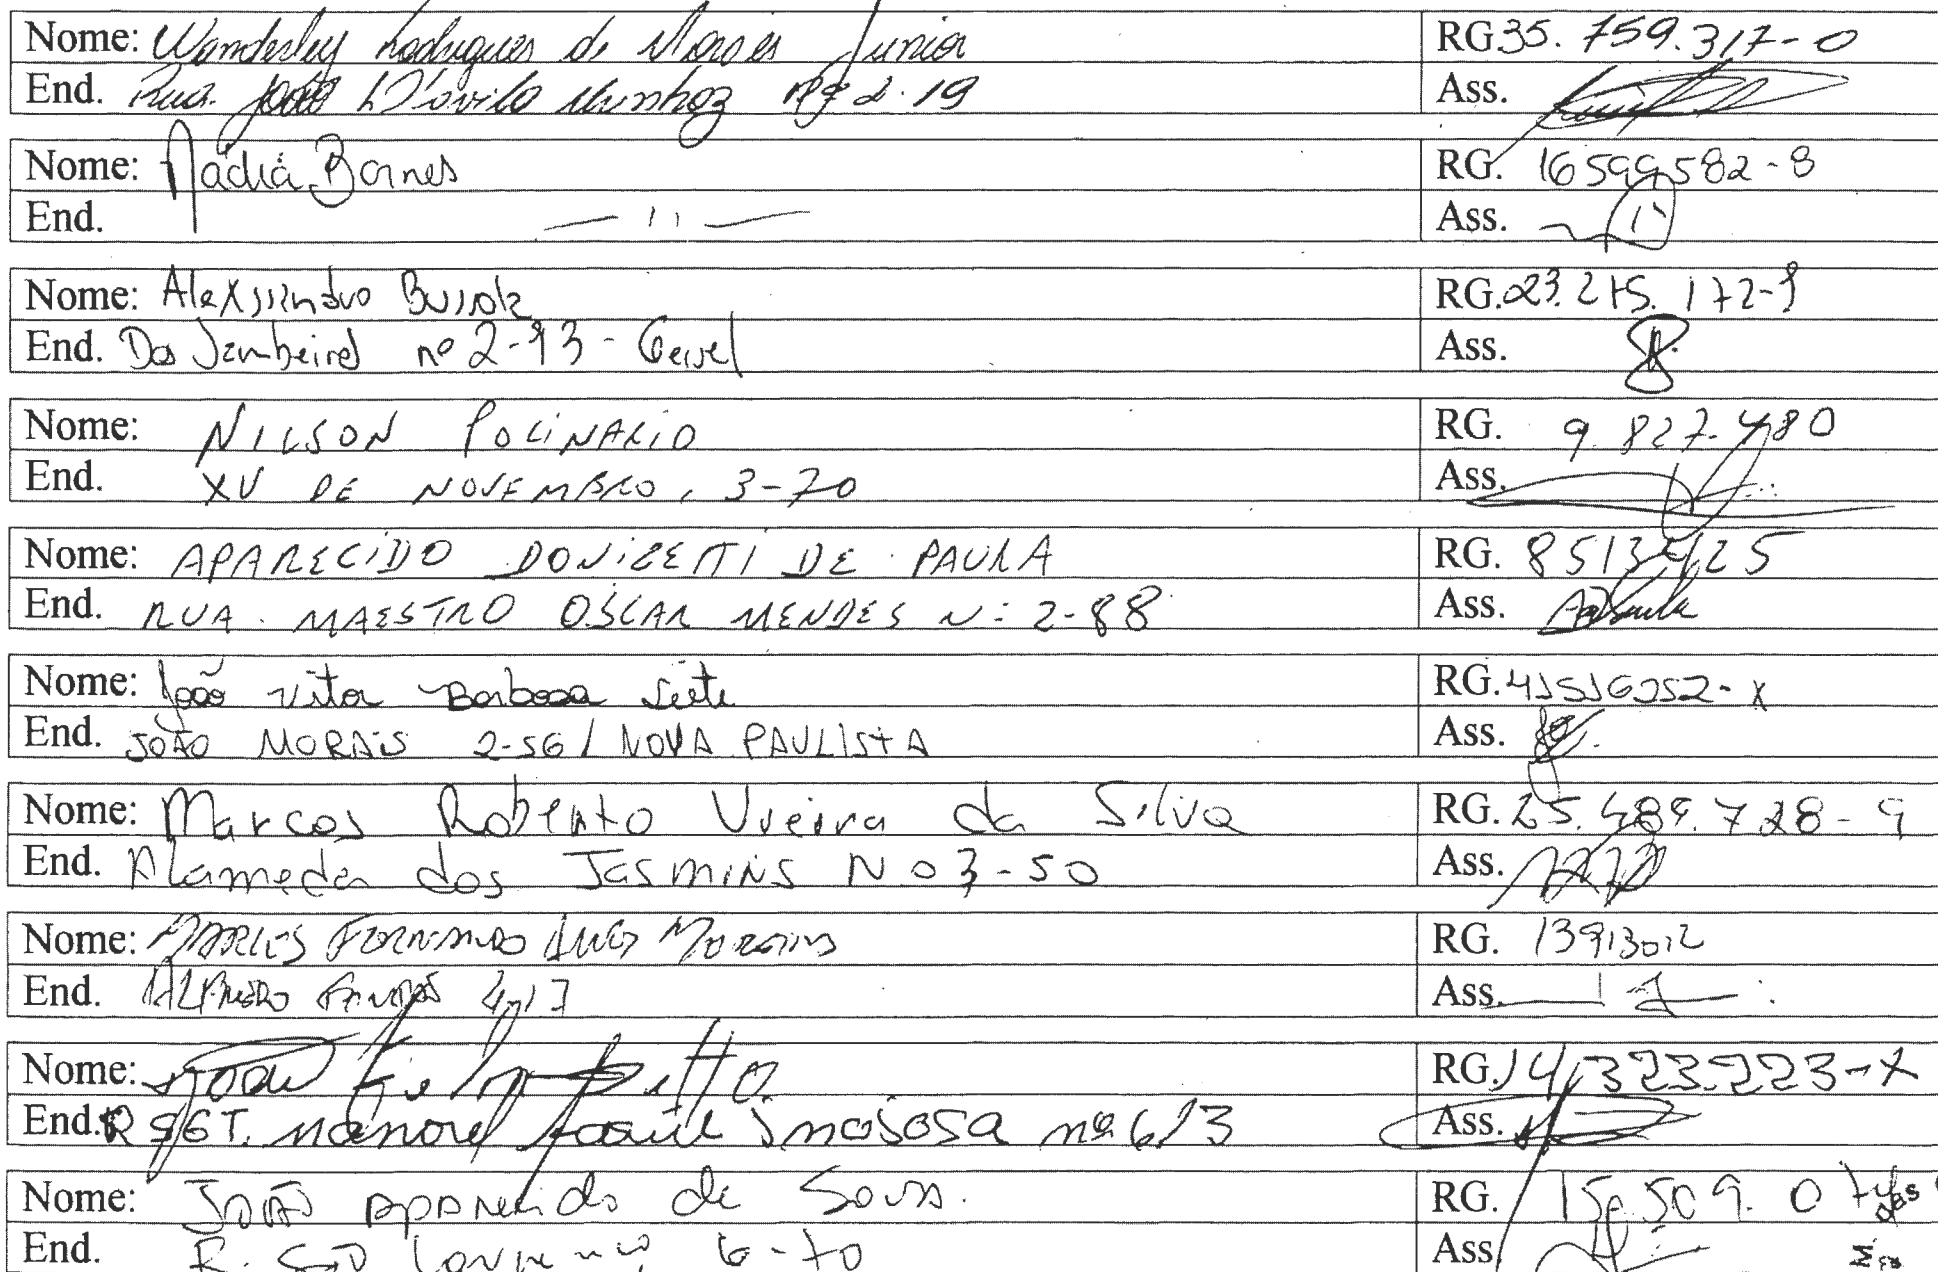 Nome: Wanderley Rodrigues de Moraes Junior RG 35.759.317-0
End. Rua João D'avila Munhoz nº 2-19 Ass.
Nome: Nadia Bornes RG. 16599582-8
End. — 11 — Ass.
Nome: Alexssandro RG. 23.215.172-9
End. Dos Jambeiros nº 2-93 - Geisel Ass.
Nome: NILSON POLINARIO RG. 9.827.480
End. XV DE NOVEMBRO, 3-70 Ass.
Nome: APARECIDO DONIZETTI DE PAULA RG.
End. RUA MAESTRO OSCAR MENDES N: 2-88 Ass.
Nome: João Vitor Barbosa Leite RG.
End. JOÃO MORAIS 2-56 / NOVA PAULISTA Ass.
Nome: Marcos Roberto Vieira da Silva RG. 25.489.728-9
End. Alameda dos Jasmins No 3-50 Ass.
Nome: FERNANDO RG. 13913012
End. ALFREDO Ass.
Nome: RG. 14.323.223-X
End. R SGT. Manoel inojosa nº 6/3 Ass.
Nome: João Aparecido de Sousa. RG.
End. R. São Lourenço 6-70 Ass